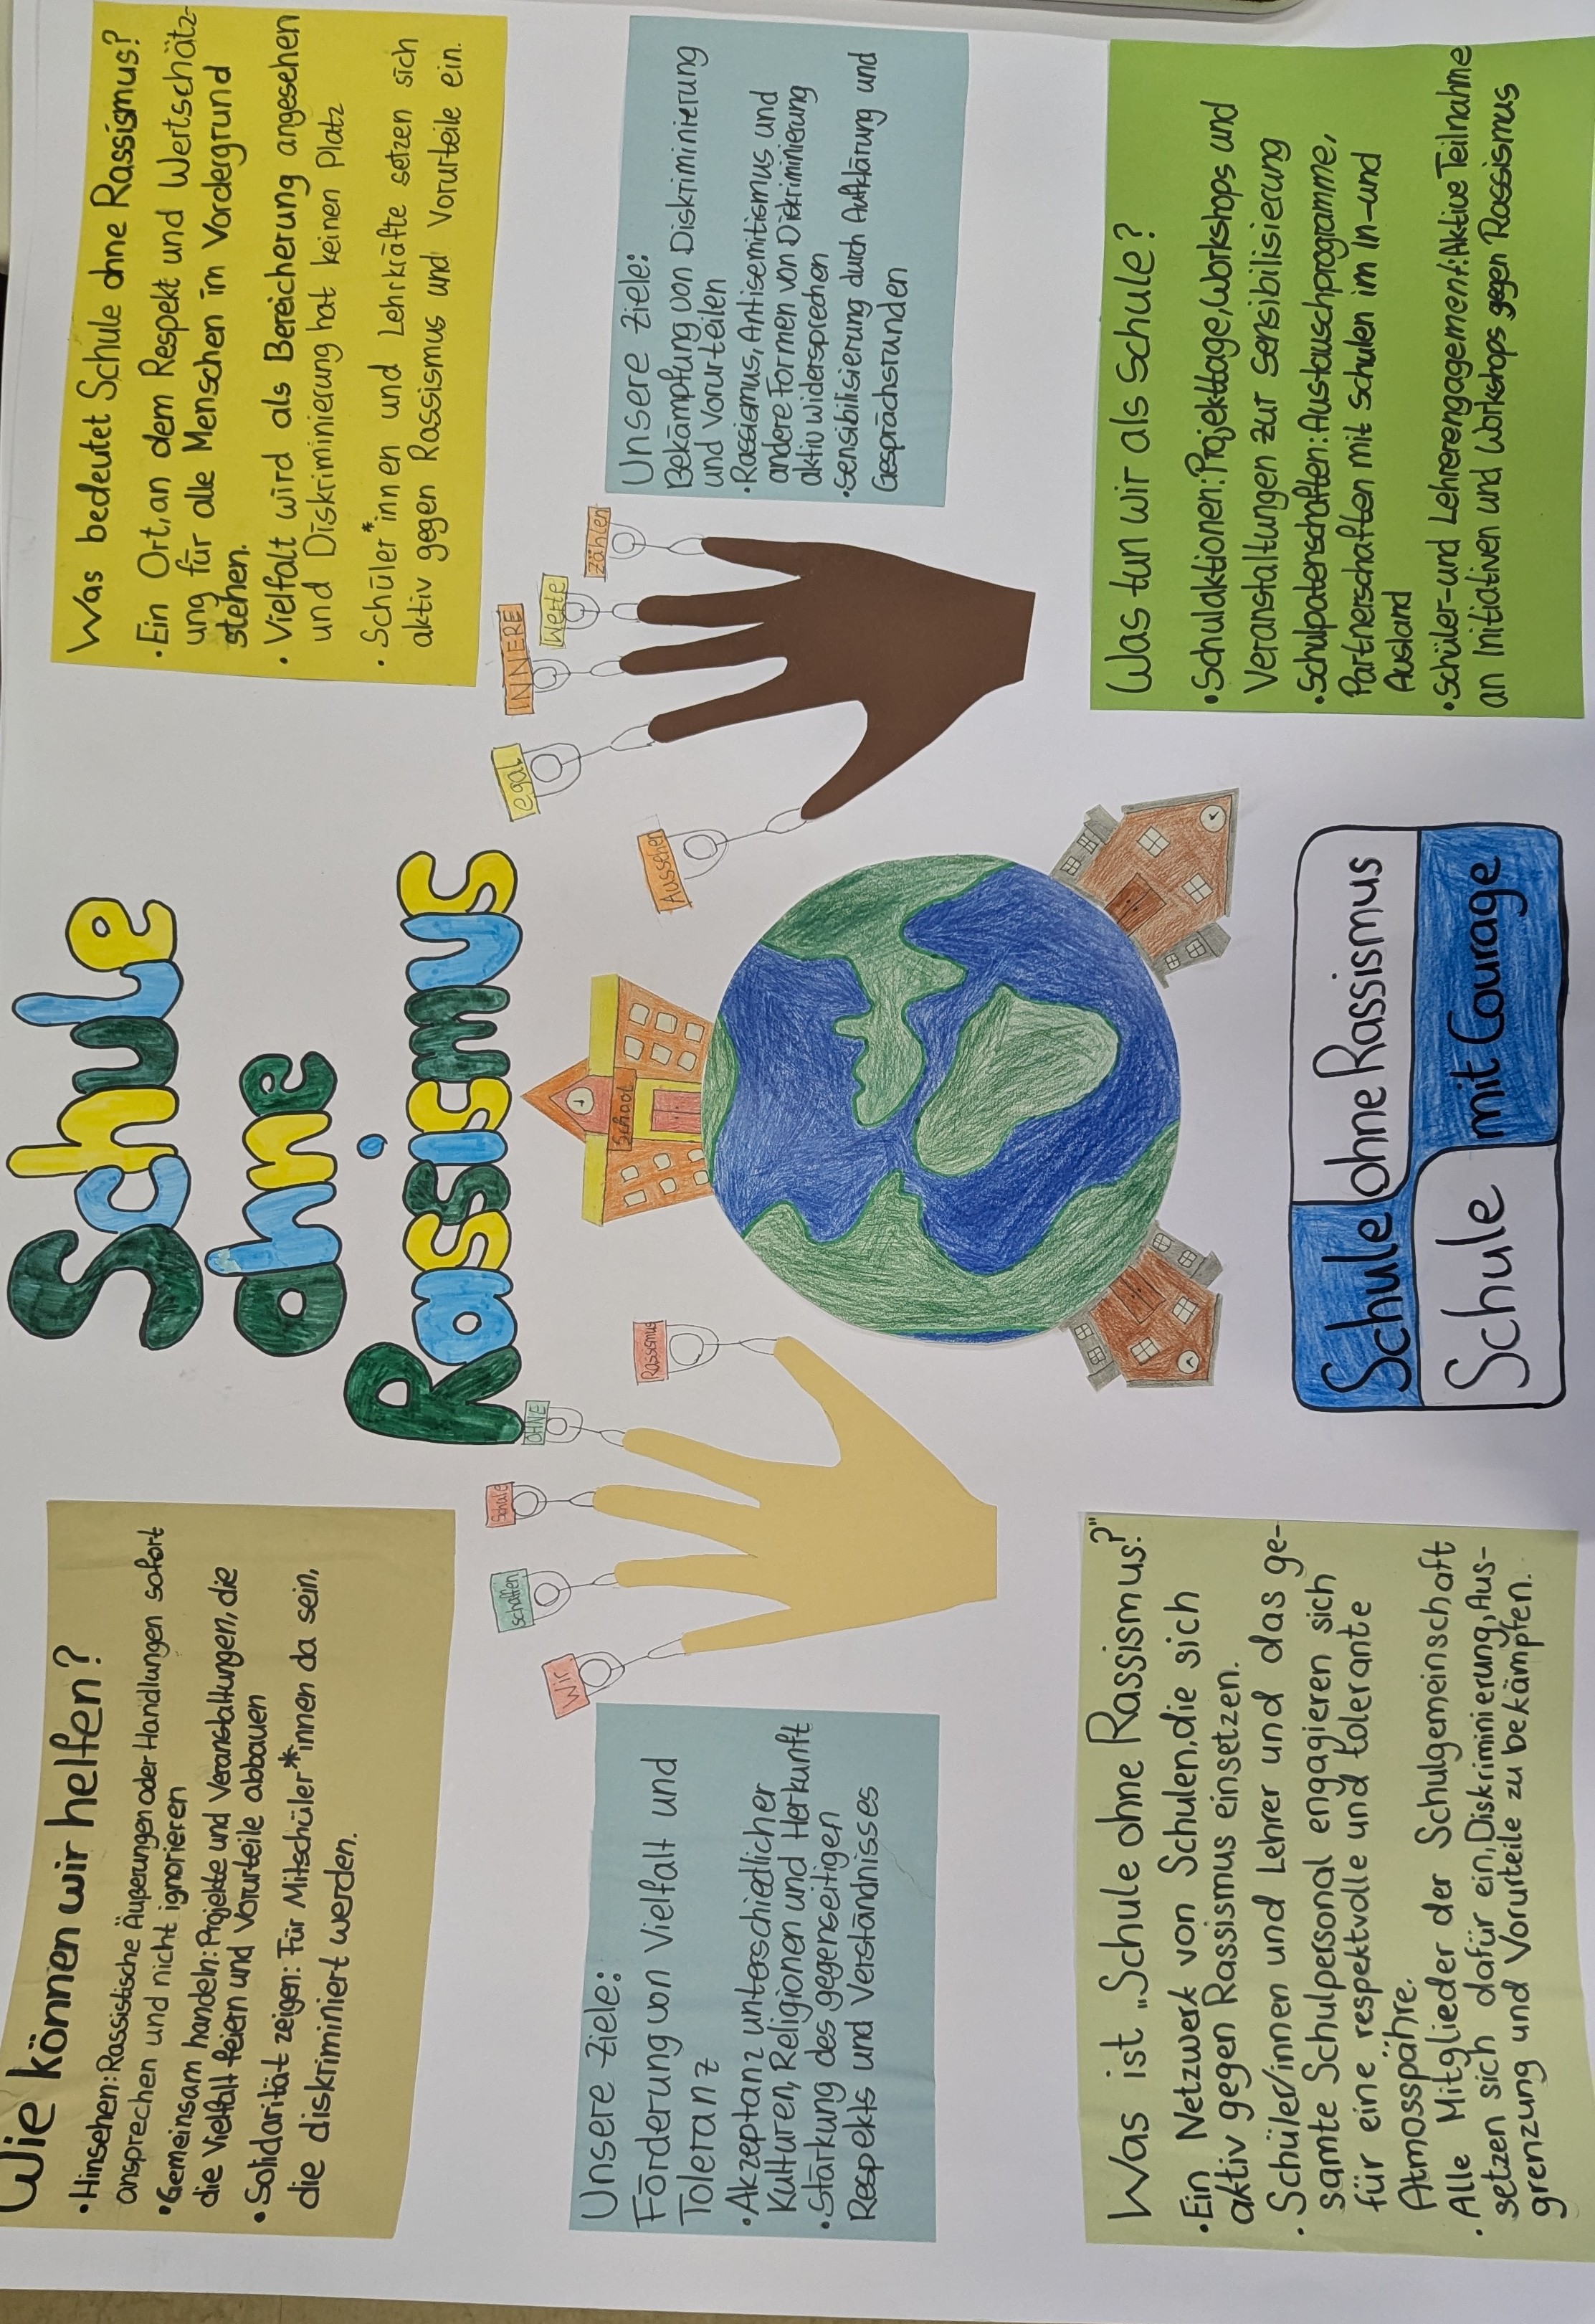 Wie können wir helfen?
• Hinsehen: Rassistische Äußerungen oder Handlungen sofort
ansprechen und nicht ignorieren
• Gemeinsam handeln: Projekte und Veranstaltungen, die
die Vielfalt feiern und Vorurteile abbauen
• Solidarität zeigen: Für Mitschüler*innen da sein,
die diskriminiert werden.
Schule
ohne
Rassismus
Was bedeutet Schule ohne Rassismus?
• Ein Ort, an dem Respekt und Wertschätz-
ung für alle Menschen im Vordergrund
stehen.
• Vielfalt wird als Bereicherung angesehen
und Diskriminierung hat keinen Platz
• Schüler*innen und Lehrkräfte setzen sich
aktiv gegen Rassismus und Vorurteile ein.
Unsere Ziele:
Förderung von Vielfalt und
Toleranz
• Akzeptanz unterschiedlicher
Kulturen, Religionen und Herkunft
• Stärkung des gegenseitigen
Respekts und Verständnisses
Wir
schaffen
Schule
OHNE
Rassismus
School
Aussehen
egal
INNERE
Werte
zählen
Unsere Ziele:
Bekämpfung von Diskriminierung
und Vorurteilen
• Rassismus, Antisemitismus und
andere Formen von Diskriminierung
aktiv widersprechen
• Sensibilisierung durch Aufklärung und
Gesprächsrunden
Was ist „Schule ohne Rassismus?"
• Ein Netzwerk von Schulen, die sich
aktiv gegen Rassismus einsetzen.
• Schüler/innen und Lehrer und das ge-
samte Schulpersonal engagieren sich
für eine respektvolle und tolerante
Atmosspähre.
• Alle Mitglieder der Schulgemeinschaft
setzen sich dafür ein, Diskriminierung, Aus-
grenzung und Vorurteile zu bekämpfen.
Schule ohne Rassismus
Schule mit Courage
Was tun wir als Schule?
• Schulaktionen: Projekttage, Workshops und
Veranstaltungen zur Sensibilisierung
• Schulpatenschaften: Austauschprogramme,
Partnerschaften mit Schulen im In- und
Ausland
• Schüler- und Lehrerengagement: Aktive Teilnahme
an Initiativen und Workshops gegen Rassismus